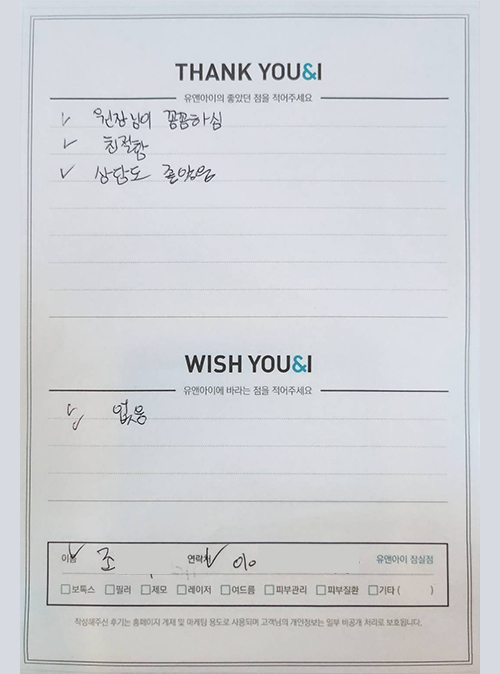 THANK YOU&I
유앤아이의 좋았던 점을 적어주세요
✓ 원장님이 꼼꼼하심
✓ 친절함
✓ 상담도 좋았음
WISH YOU&I
유앤아이에 바라는 점을 적어주세요
✓ 없음
이름 ✓ 조 연락처 ✓ 010 유앤아이 잠실점
□보톡스 □필러 □제모 □레이저 □여드름 □피부관리 □피부질환 □기타 ( )
작성해주신 후기는 홈페이지 게재 및 마케팅 용도로 사용되며 고객님의 개인정보는 일부 비공개 처리로 보호됩니다.